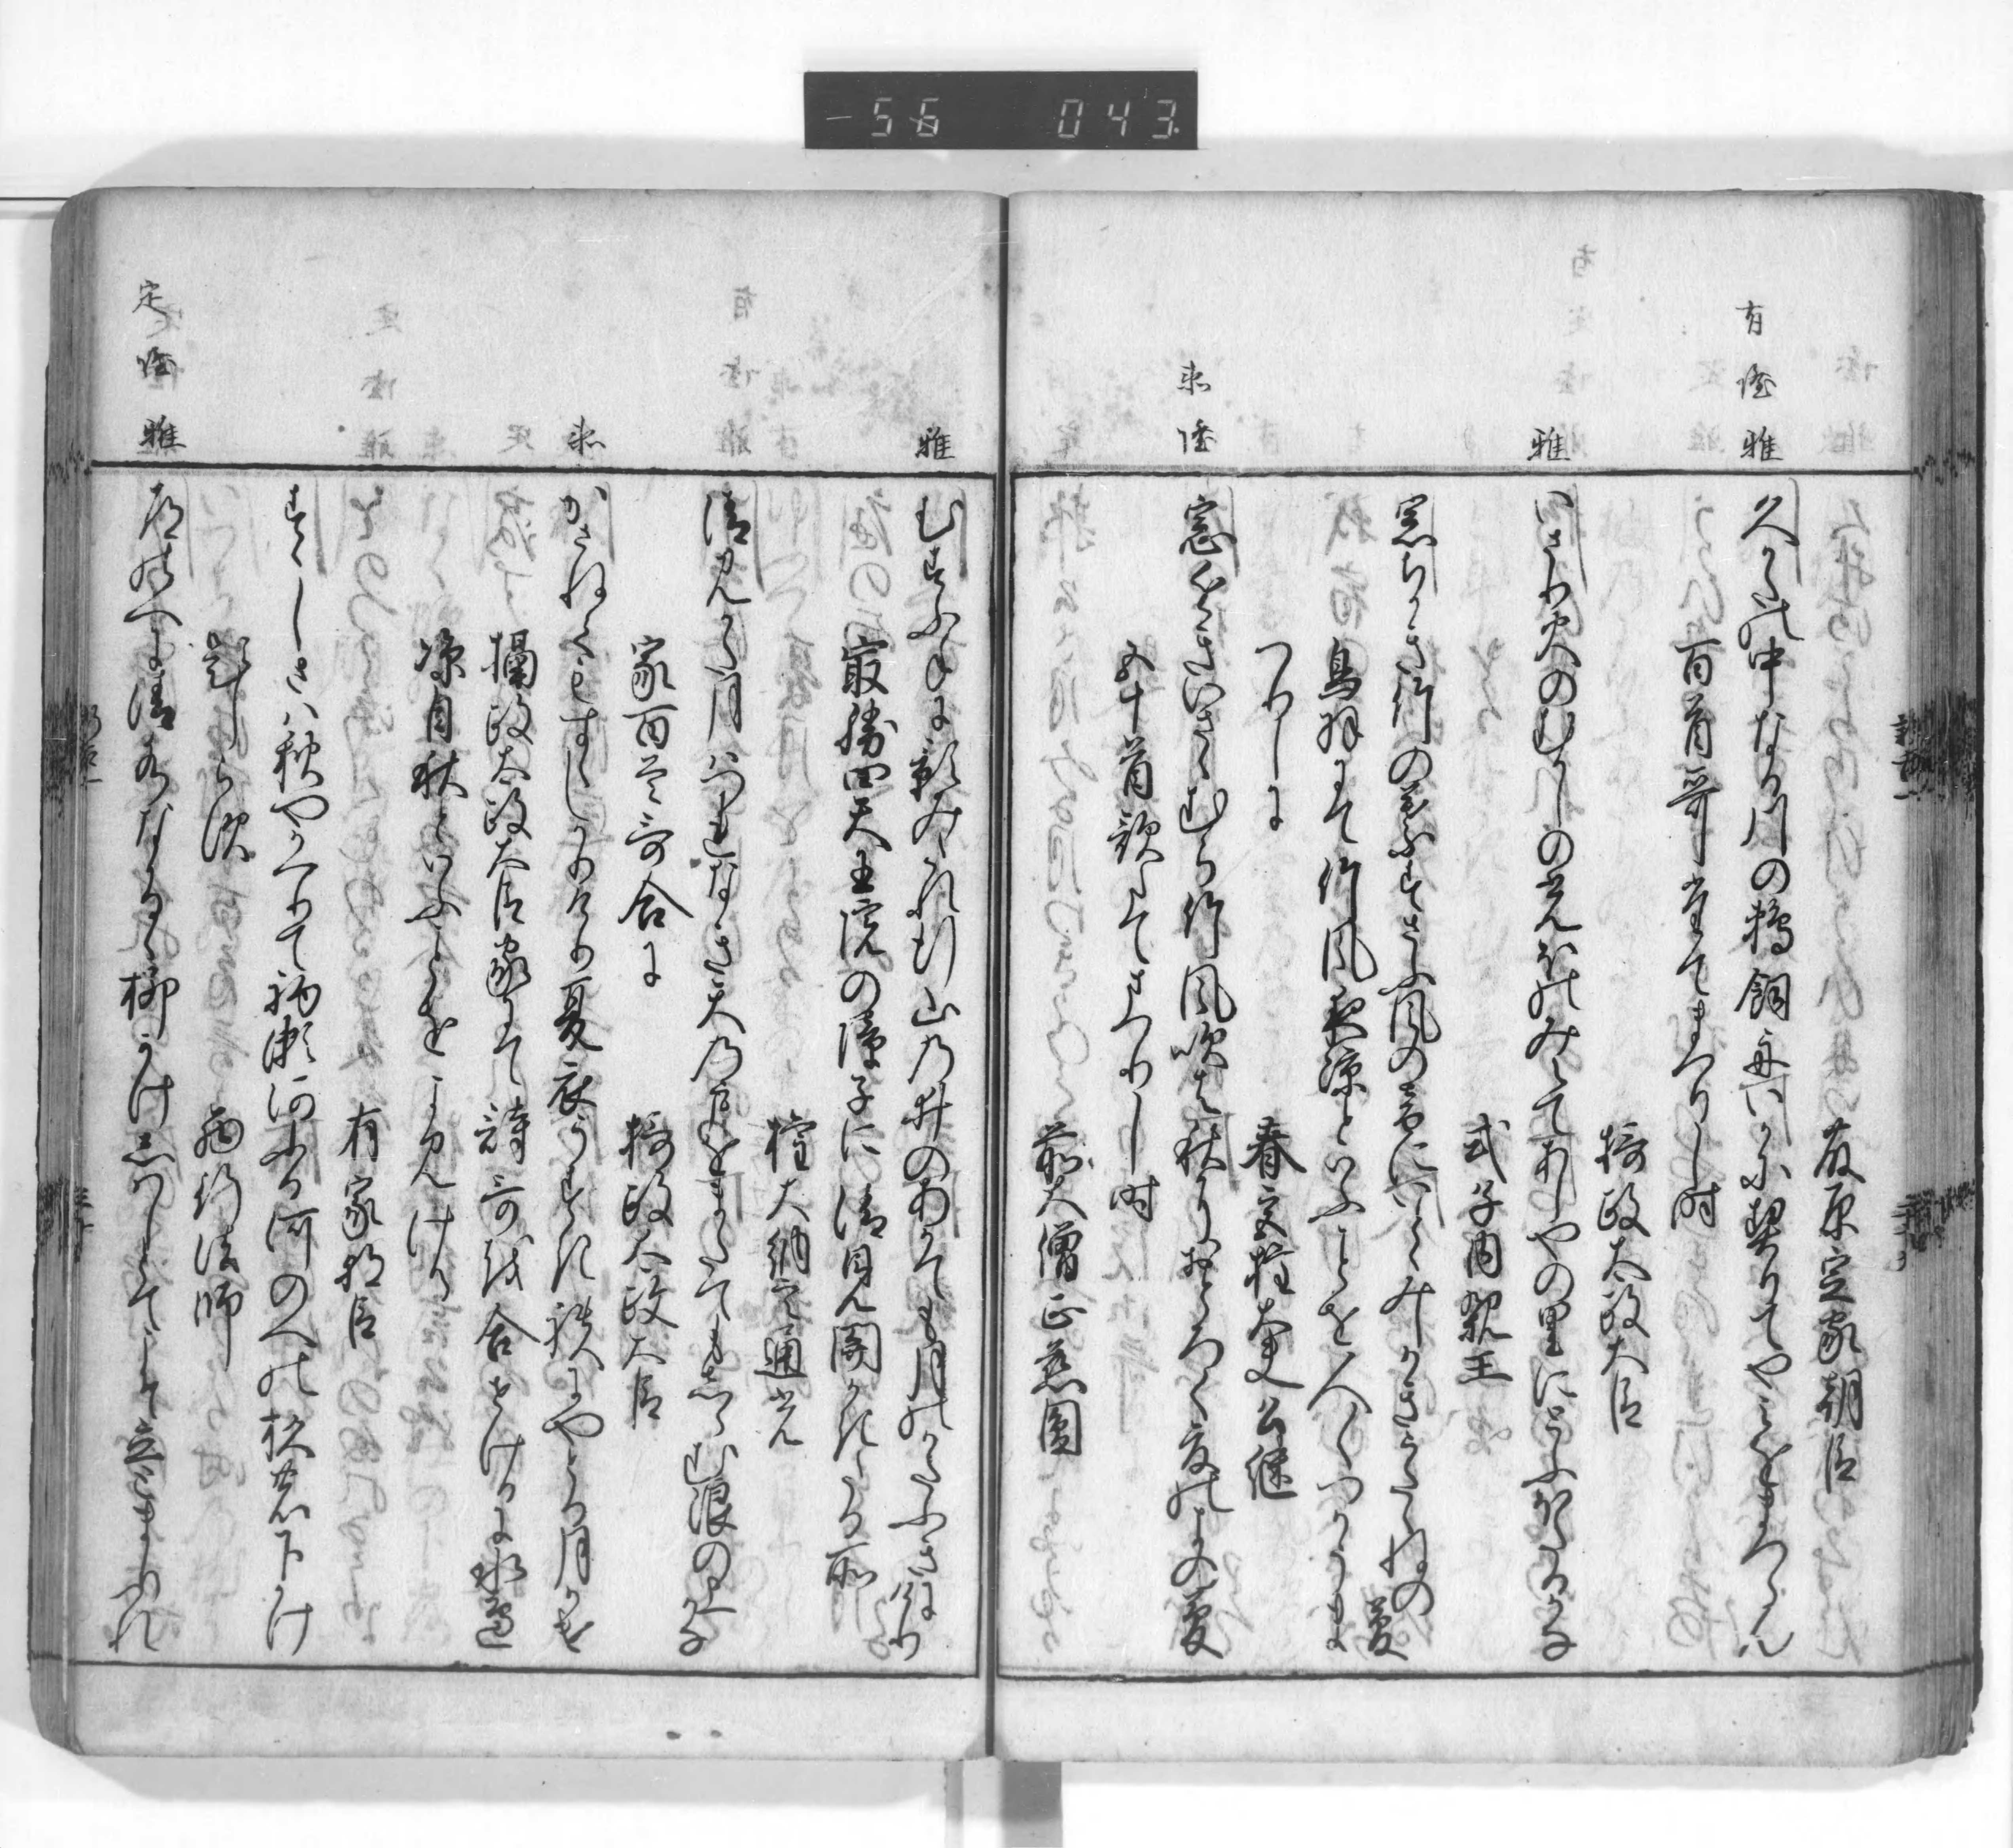 -56 043
藤原定家朝臣
有 隆 雅
久かたの中なる川の鵜飼舟いかに契りてやみをまつらん
百首哥奉てまつりし時
摂政太政大臣
雅
いさり火のむかしの光ほのみえてあしやの里にとふほたるかな
式子内親王
窓ちかき竹の葉すさふ風の音にいとゝみしかきうたゝねの夢
鳥羽にて竹風夜涼といふことを人〳〵つかうま
つりしに
春宮権大夫公継
衆 隆
窓ちかきいさゝむら竹風吹は秋におとろく夏のよの夢
五十首歌たてまつりし時
前大僧正慈圓
雅
むすふ手に影みたれ行山の井のあかても月のかたふきにけり
最勝四天王院の障子に清見関かきたる所
権大納言通光
清みかた月はつれなき天の戸をまたてもしらむ浪の上かな
家百首哥合に
摂政太政大臣
衆
かさねてもすゝしかりけり夏衣うすき袂にやとる月かけ
摂政太政大臣家にて詩哥を合せけるに水邊
凉自秋といふことをよみける
有家朝臣
すゝしさは秋やかへりて初瀬河ふる河のへの杉の下かけ
題しらす
西行法師
定 隆 雅
道のへに清水なかるゝ柳かけしはしとてこそ立とまりつれ